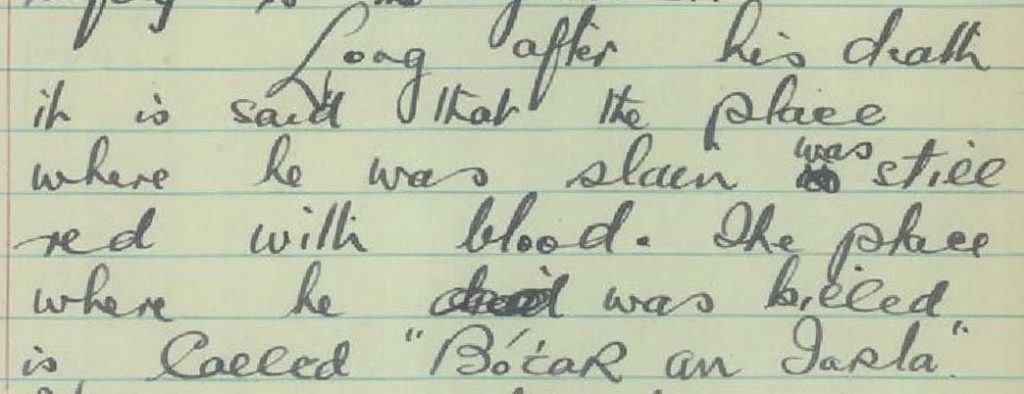 Long after his death
it is said that the place
where he was slain was still
red with blood. The place
where he was killed
is Called "Bóṫar an Iarla".